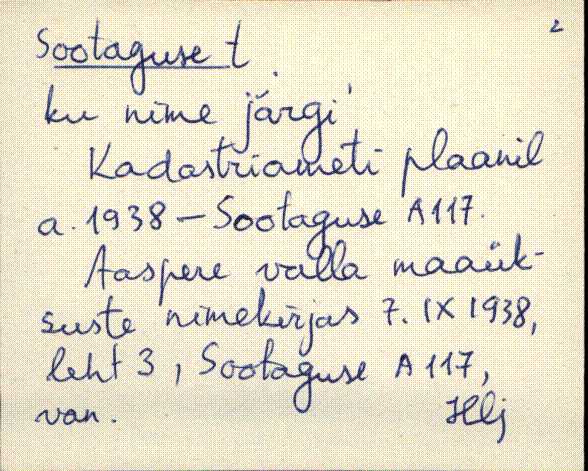 2
Sootaguse t.
ku nime järgi
Kadastriameti plaanil
a. 1938 – Sootaguse A117.
Aaspere valla maaük-
suste nimekirjas 7. IX 1938,
leht 3, Sootaguse A 117,
van. Hlj